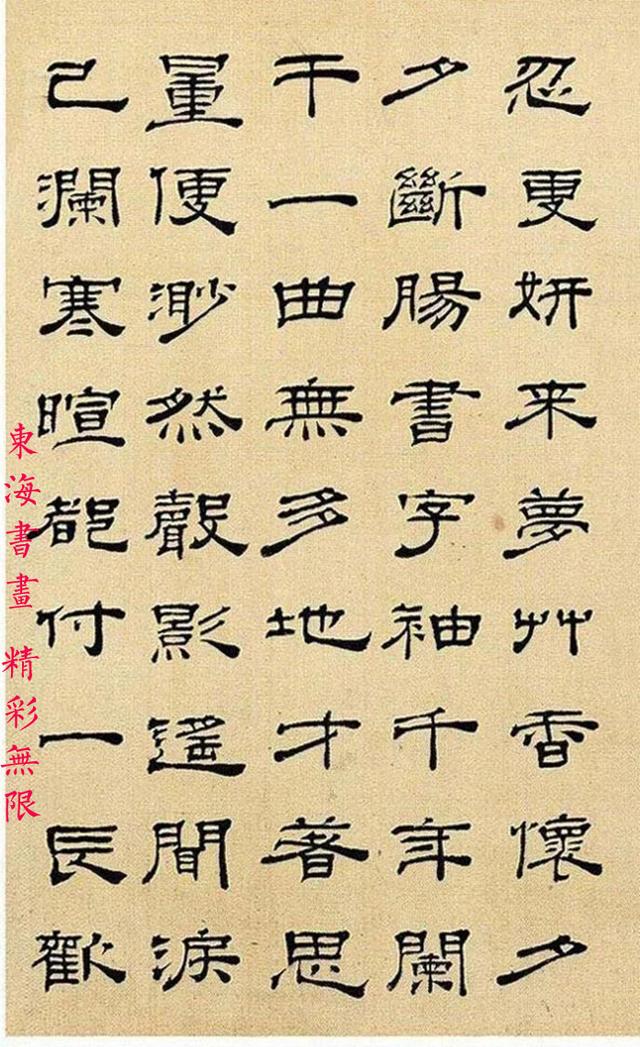 忍更妍来夢艸香懷夕
夕斷腸書字袖千年闌
干一曲無多地才著思
量便渺然聲影遙間淚
已瀾寒暄都付一長歎
東海書畫 精彩無限